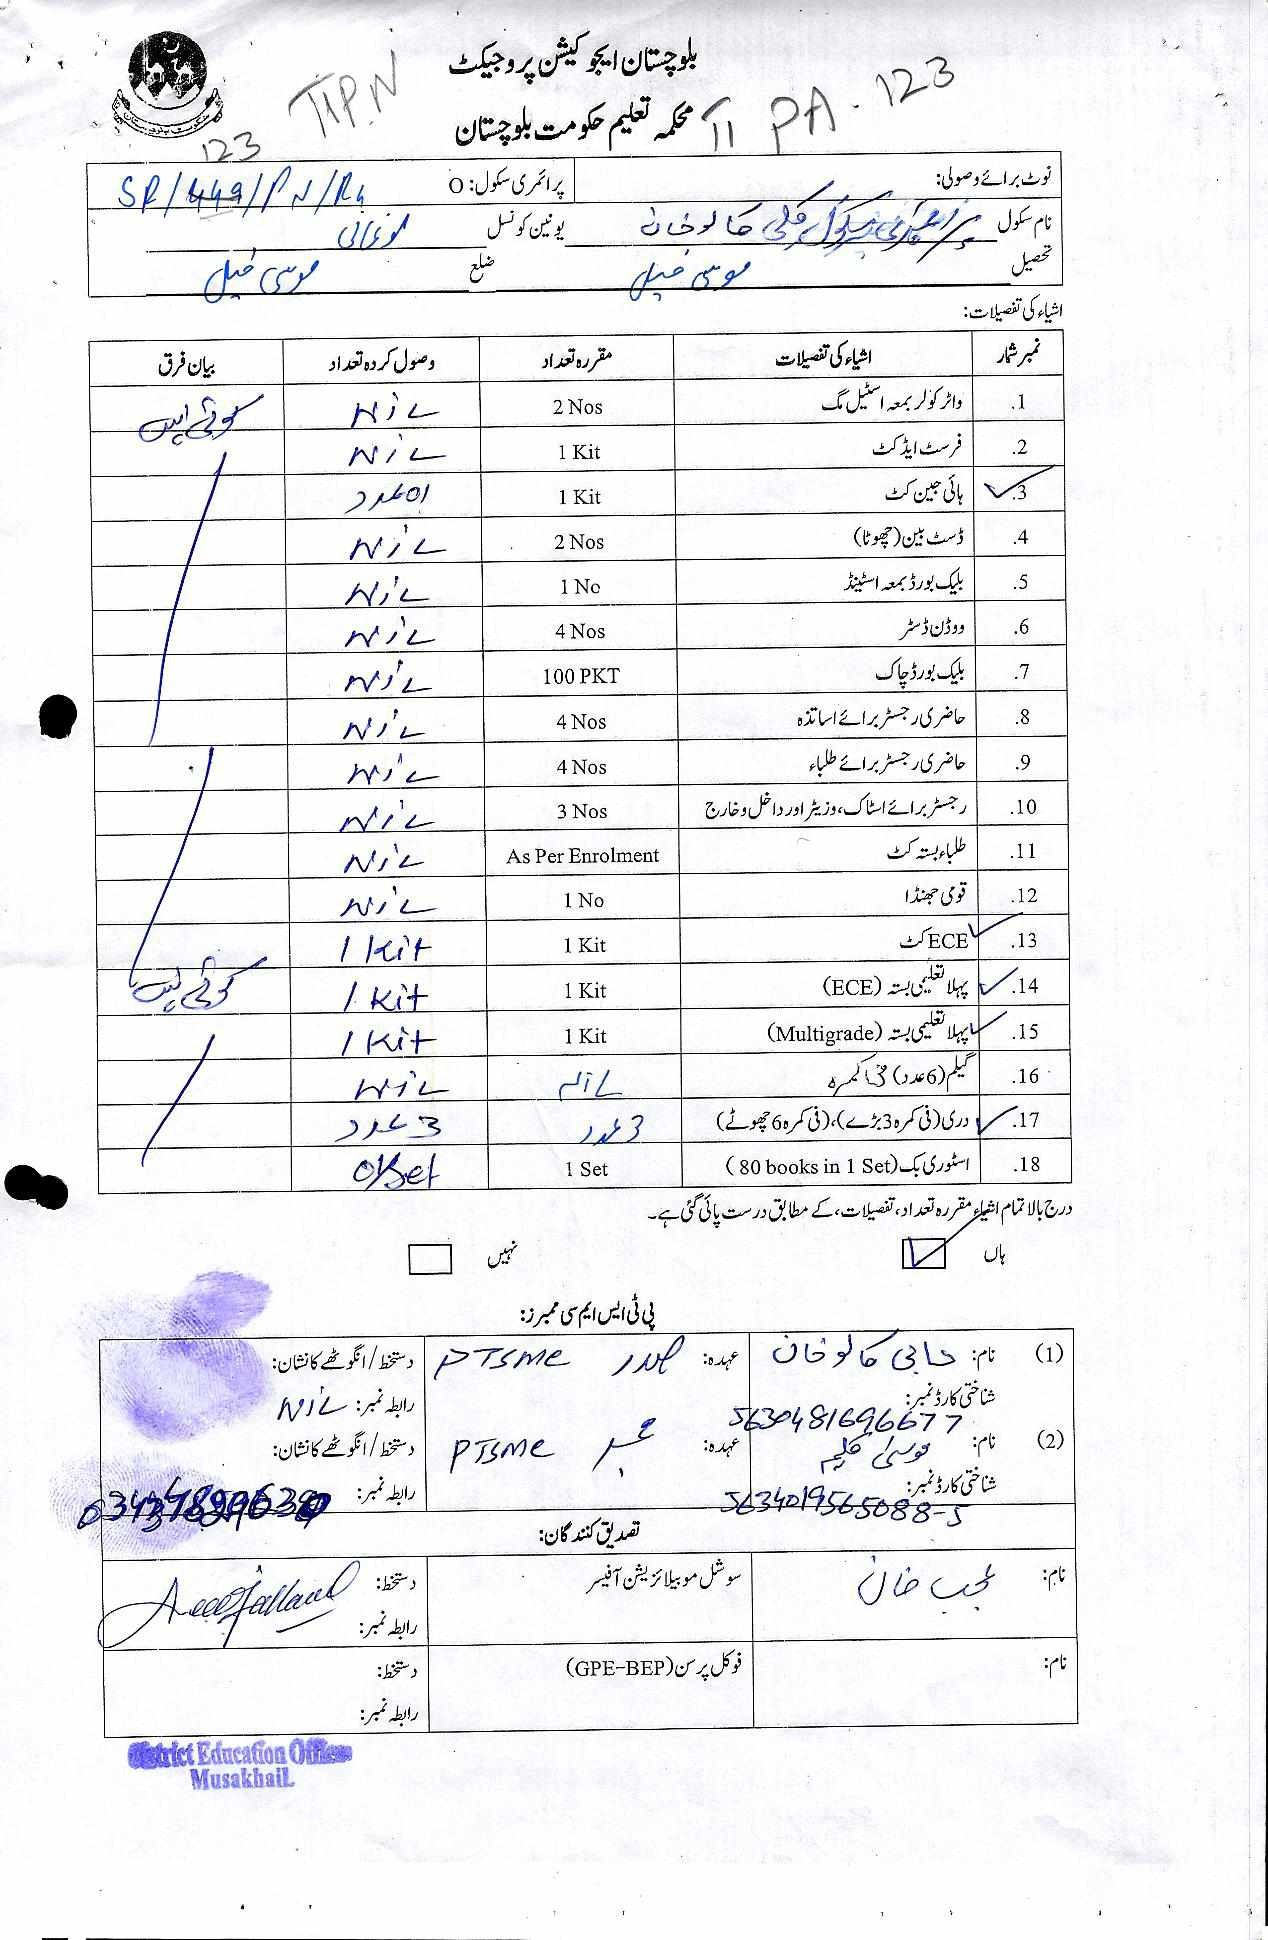 بلوچستان ایجوکیشن پروجیکٹ
TIP.N
محکمہ تعلیم حکومت بلوچستان
II PA - 123
123
نوٹ برائے وصولی:
پرائمری سکول: O SR/449/PN/R4
نام سکول پرائمری سکول کلی کالوخان یونین کونسل
تحصیل موسیٰ خیل ضلع موسیٰ خیل
اشیاء کی تفصیلات:
نمبر شمار اشیاء کی تفصیلات مقررہ تعداد وصول کردہ تعداد بیان فرق
1. واٹر کولر بمعہ اسٹیل مگ 2 Nos NIL کوئی نہیں
2. فرسٹ ایڈ کٹ 1 Kit NIL
3. ہائی جین کٹ 1 Kit 01 عدد
4. ڈسٹ بین (چھوٹا) 2 Nos NIL
5. بلیک بورڈ بمعہ اسٹینڈ 1 No NIL
6. ووڈن ڈسٹر 4 Nos NIL
7. بلیک بورڈ چاک 100 PKT NIL
8. حاضری رجسٹر برائے اساتذہ 4 Nos NIL
9. حاضری رجسٹر برائے طلباء 4 Nos NIL
10. رجسٹر برائے اسٹاک، وزیٹر اور داخل و خارج 3 Nos NIL
11. طلباء بستہ کٹ As Per Enrolment NIL
12. قومی جھنڈا 1 No NIL
13. ECE کٹ 1 Kit 1 Kit
14. پہلا تعلیمی بستہ (ECE) 1 Kit 1 Kit کوئی نہیں
15. پہلا تعلیمی بستہ (Multigrade) 1 Kit 1 Kit
16. گیلم (6 عدد) فی کمرہ NIL
17. دری (فی کمرہ 3 بڑے)، (فی کمرہ 6 چھوٹے) 3 عدد 3 عدد
18. اسٹوری بک (80 books in 1 Set) 1 Set 01 Set
درج بالا تمام اشیاء مقررہ تعداد، تفصیلات، کے مطابق درست پائی گئی ہے۔
ہاں نہیں
پی ٹی ایس ایم سی ممبرز:
(1) نام: حاجی کالو خان عہدہ: صدر PTSMC دستخط/انگوٹھے کا نشان:
شناختی کارڈ نمبر: 5630481696677 رابطہ نمبر: NIL
(2) نام: موسیٰ کلیم عہدہ: ممبر PTSMC دستخط/انگوٹھے کا نشان:
شناختی کارڈ نمبر: 5634019565088-5 رابطہ نمبر:
تصدیق کنندگان:
نام: عجب خان سوشل موبیلائزیشن آفیسر دستخط:
رابطہ نمبر:
نام: فوکل پرسن (GPE-BEP) دستخط:
رابطہ نمبر:
District Education Officer
Musakhail